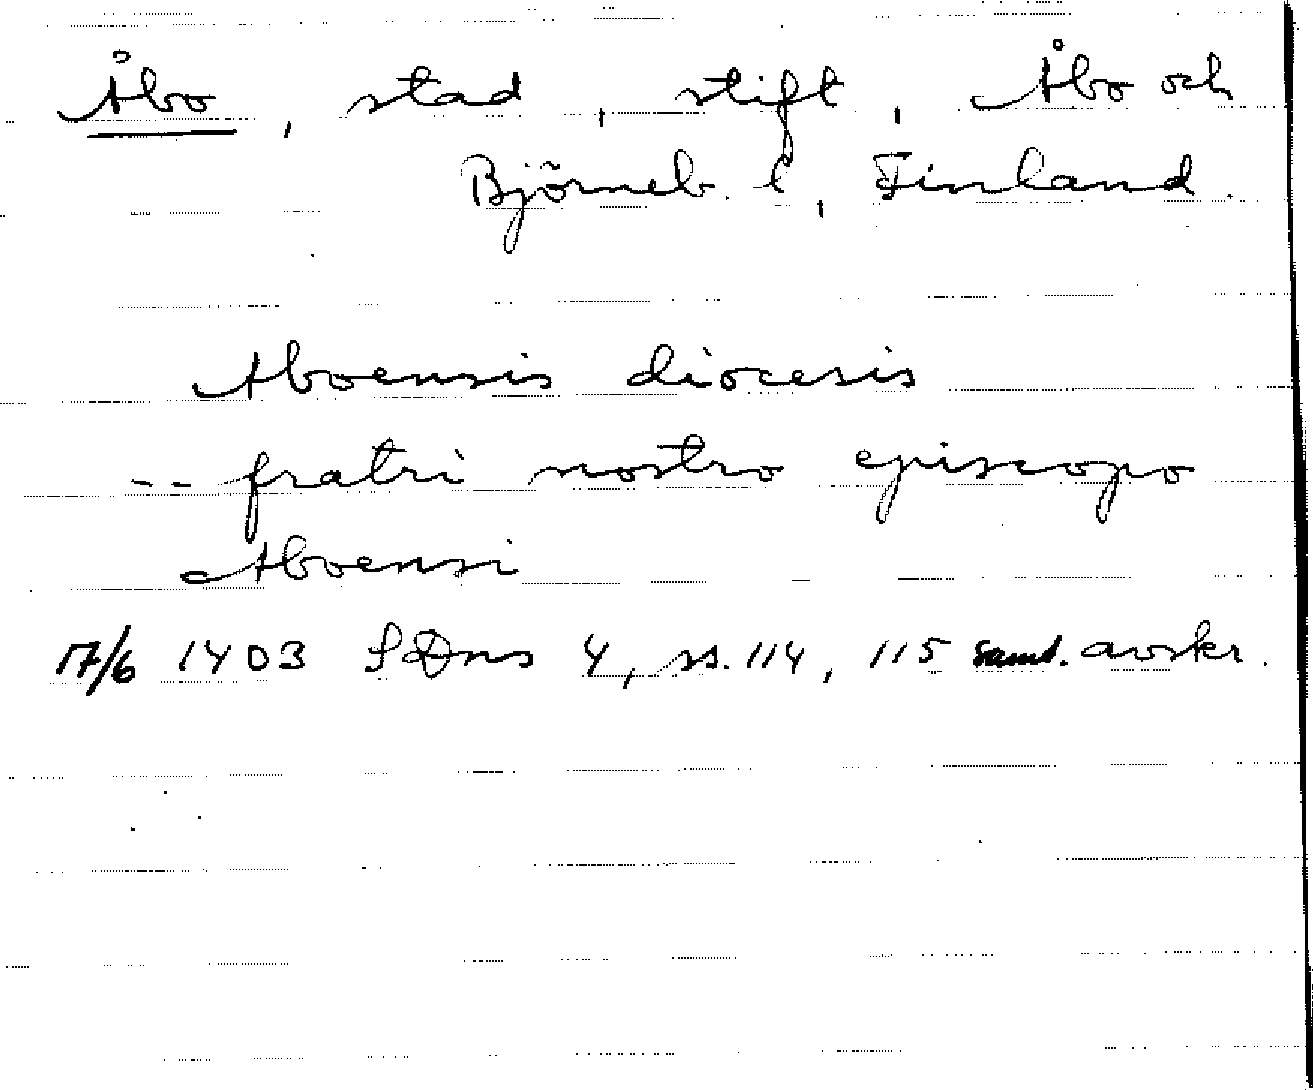 Åbo, stad, stift, Åbo och
Björneb. l, Finland.
Aboensis diocesis
-- fratri nostro episcopo
Aboensi
17/6 1403 SDns 4, ss. 114, 115 samt. avskr.